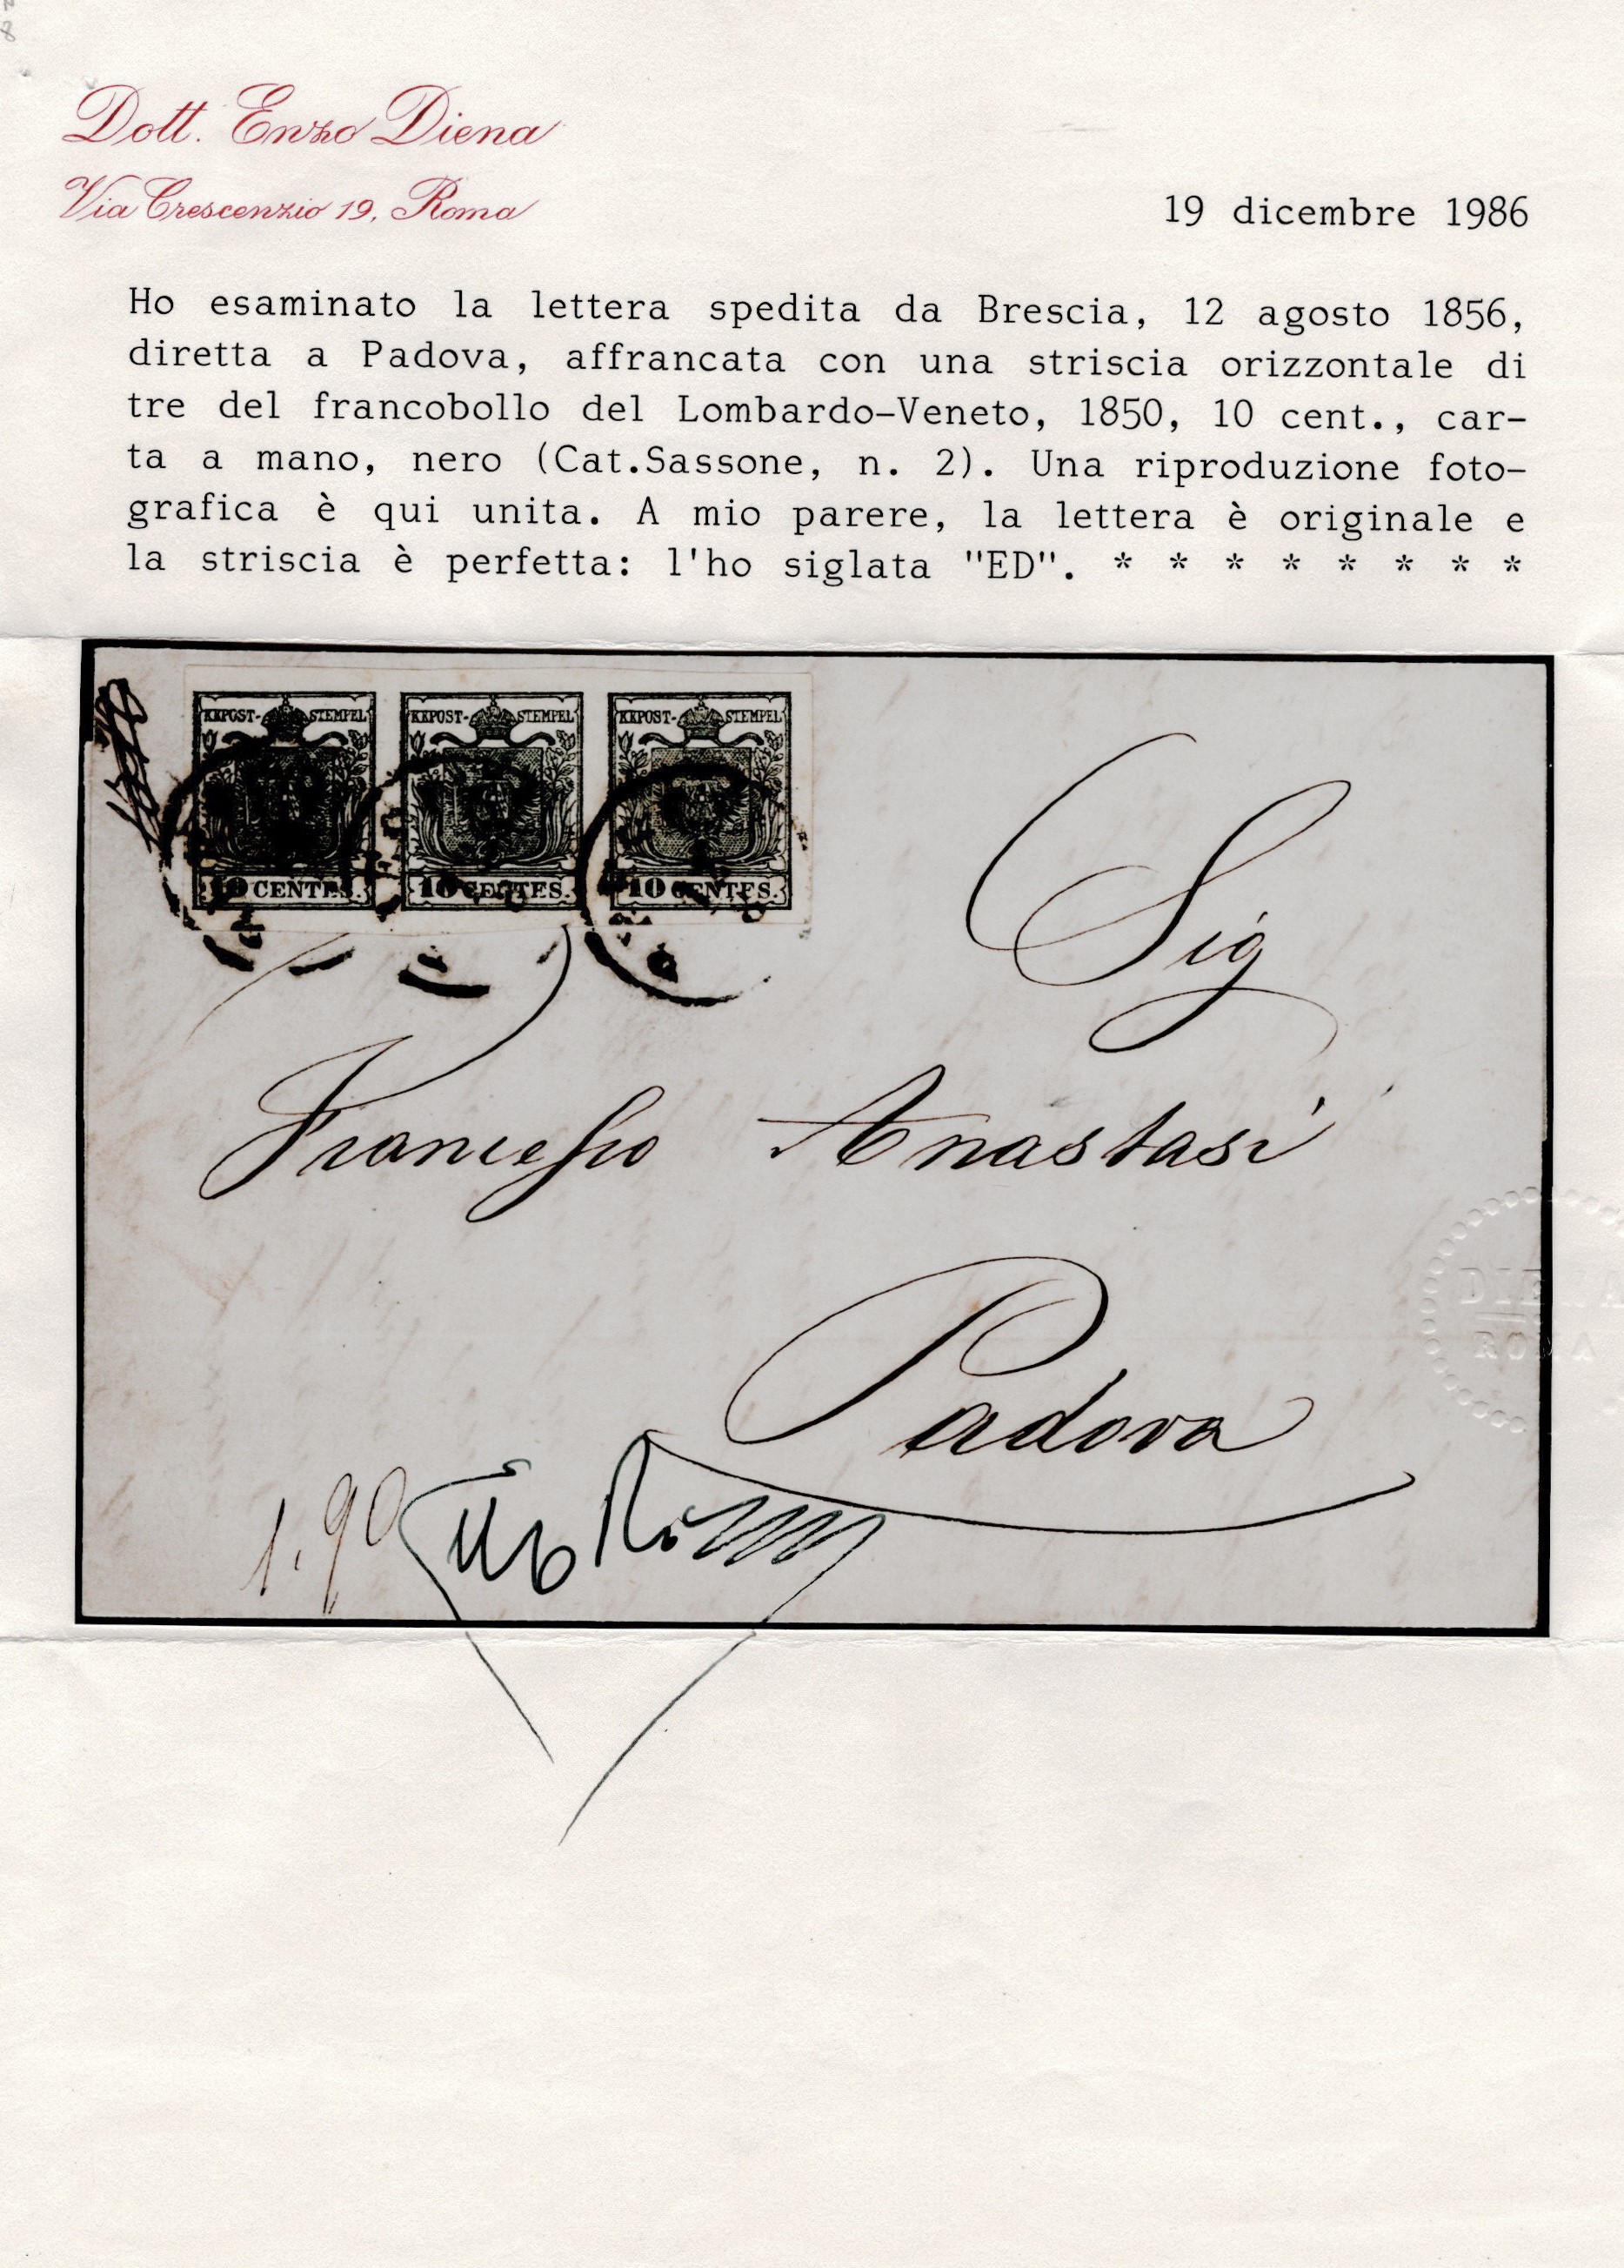 Dott. Enzo Diena
Via Crescenzio 19, Roma
19 dicembre 1986
Ho esaminato la lettera spedita da Brescia, 12 agosto 1856,
diretta a Padova, affrancata con una striscia orizzontale di
tre del francobollo del Lombardo-Veneto, 1850, 10 cent., car-
ta a mano, nero (Cat.Sassone, n. 2). Una riproduzione foto-
grafica è qui unita. A mio parere, la lettera è originale e
la striscia è perfetta: l'ho siglata "ED". * * * * * * * *
KKPOST-STEMPEL KKPOST-STEMPEL KKPOST-STEMPEL
10 CENTES. 10 CENTES. 10 CENTES.
Sig
Francesco Anastasi
Padova
DIENA
ROMA
1.90